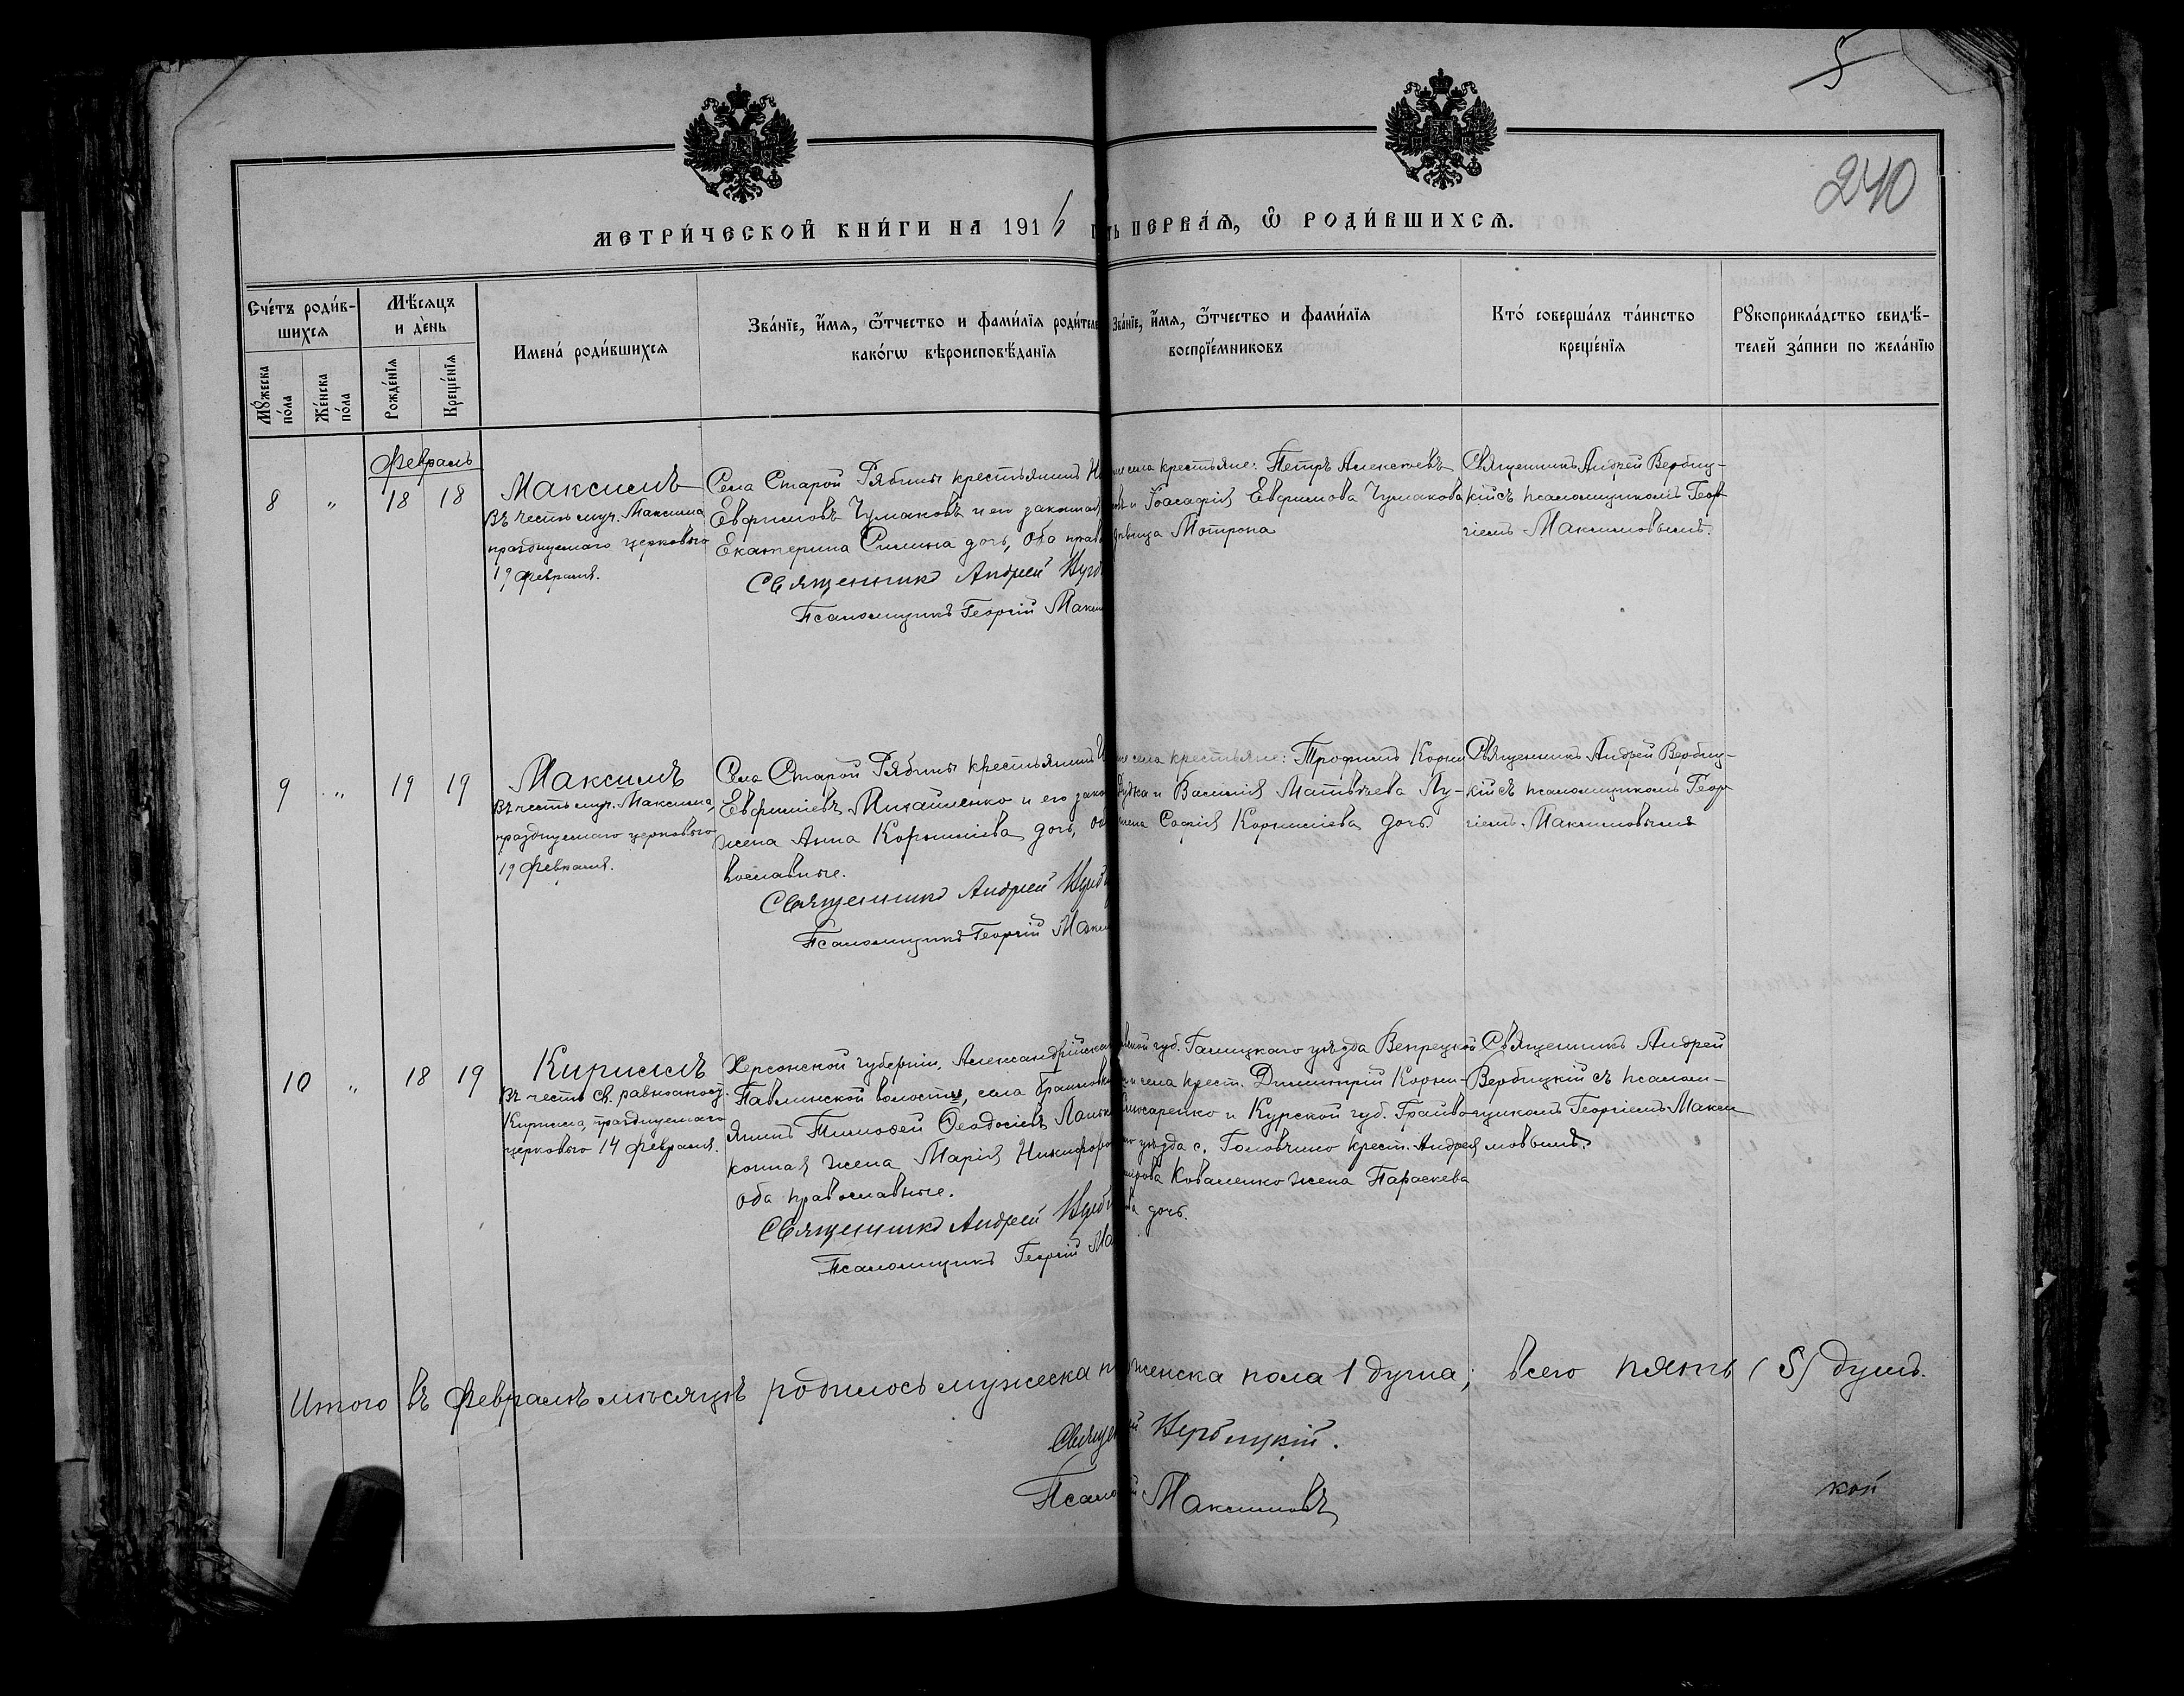 5
240
МЕТРИ́ЧЕСКОЙ КНИ́ГИ НА 1916 ПЕРВА́Ѧ, Ѽ РОДИ́ВШИХСѦ.
Сче́тъ роди́в-
шихсѧ
Мꙋ́жеска по́ла
Же́нска по́ла
Мѣ́сѧцъ
и де́нь
Рожде́нїѧ
Креще́нїѧ
Имена́ роди́вшихсѧ
Зва́нїе, и́мѧ, ѻ҆́тчество и фами́лїѧ роди́теле
како́гѡ вѣроисповѣ́данїѧ
Зва́нїе, и́мѧ, ѻ҆́тчество и фами́лїѧ
воспрїе́мниковъ
Кто́ соверша́лъ та́инство
креще́нїѧ
Рꙋкоприкла́дство свидѣ́-
телей за́писи по жела́нїю
Февраль
8 " 18 18
Максимъ
Въ честь муч. Максима
празднуемаго церковью
19 февраля.
Села Старой Рябины крестьянинъ
Евфимовъ Чумаковъ и его законная
Екатерина Силина дочь, Оба прав
Священникъ Андрей
Псаломщикъ Георгій
села крестьяне: Петръ Алексѣевъ
и Іоасафія Евфимова Чумакова
Мотрона
Священникъ Андрей Вербиц-
кій съ псаломщикомъ Геор-
гіемъ Максимовымъ.
9 " 19 19
Максимъ
Въ честь муч. Максима
празднуемаго церковью
19 февраля.
Села Старой Рябины крестьянинъ
Евфиміевъ Михайленко и его зако
жена Анна Корниліева дочь,
вославные.
Священникъ Андрей
Псаломщикъ Георгій
села крестьяне: Трофимъ Корни
и Матвѣева Лу-
Софія Корниліева дочь
Священникъ Андрей Вербиц-
кій съ псаломщикомъ Геор-
гіемъ Максимовымъ
10 " 18 19
Кириллъ
Въ честь св. равноапост.
Кирилла, празднуемаго
церковью 14 февраля.
Херсонской губерніи, Александрійска
Павлинской волости, села
янинъ Тимофей Ѳеодосіевъ
конная жена Марія Никифоро
оба православные.
Священникъ Андрей
Псаломщикъ Георгій
губ. Гадяцкаго уѣзда Веприцкой
села крест. Димитрій Корни-
и Курской губ. Грайво
уѣзда с. Головчино крест. Андрея
Коваленко жена Параскева
дочь.
Священникъ Андрей
Вербицкій съ псалом-
щикомъ Георгіемъ Макси
мовымъ.
Итого въ Февралѣ мѣсяцѣ родилось мужеска женска пола 1 душа; всего пять (5) душъ.
Вербицкій.
Максимовъ
кой